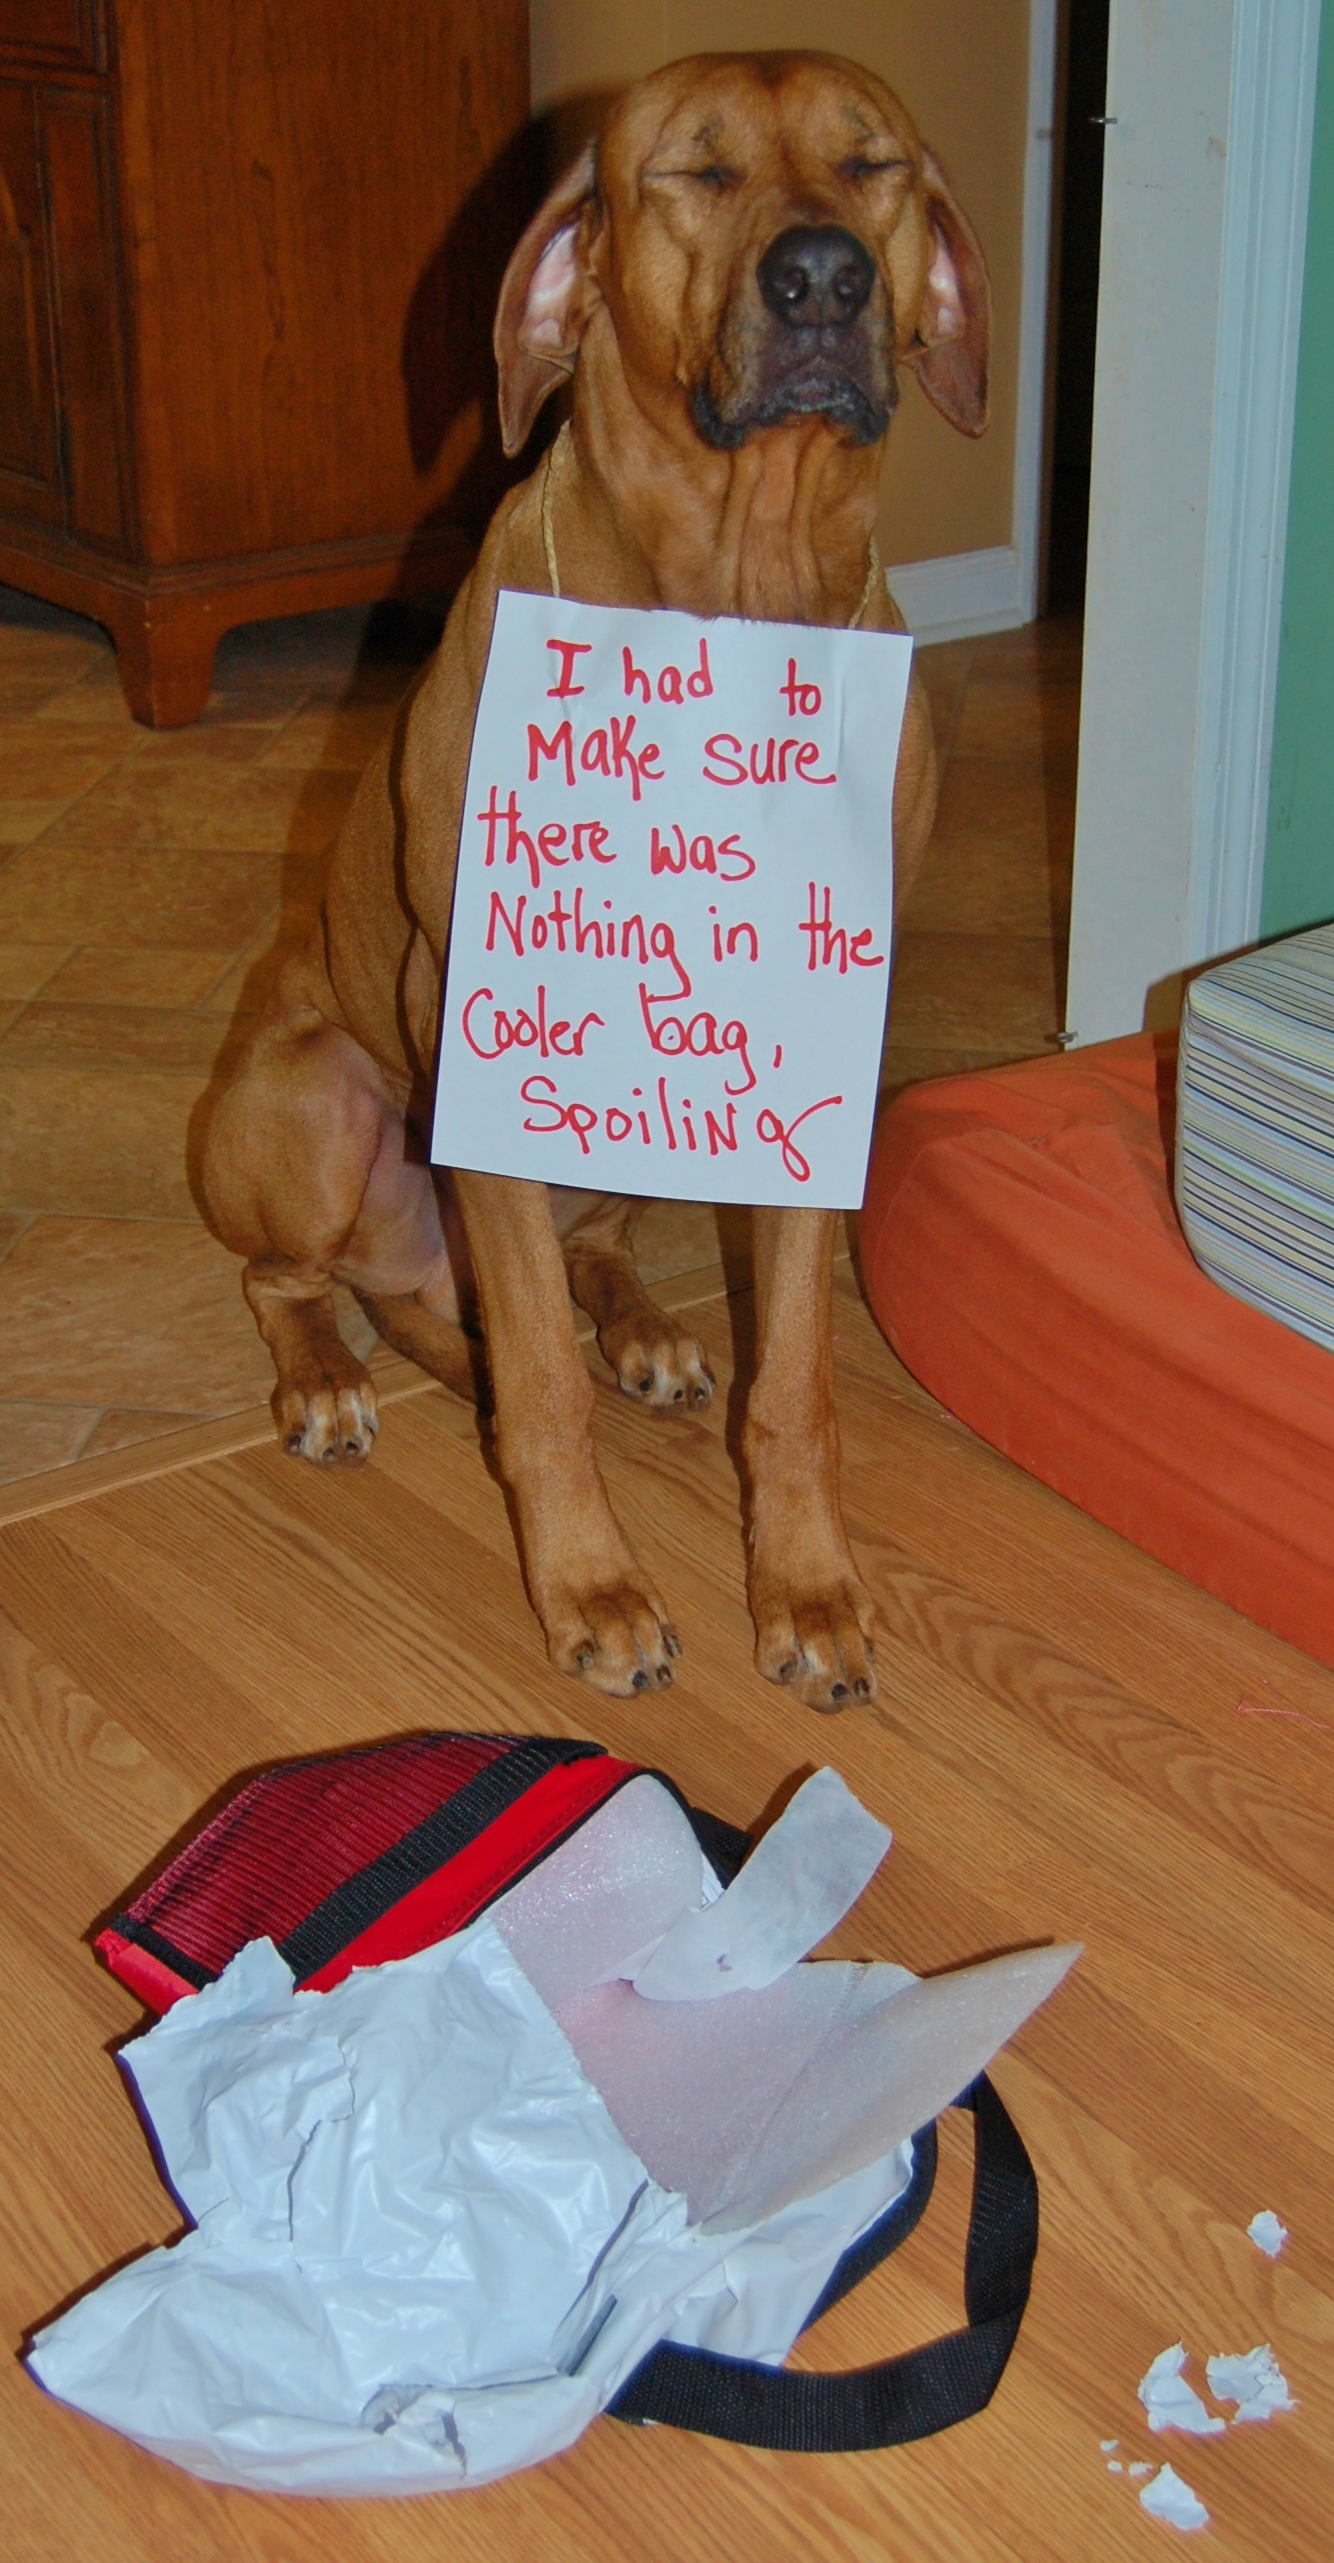 I had to
Make sure
there was
Nothing in the
Cooler bag,
Spoiling